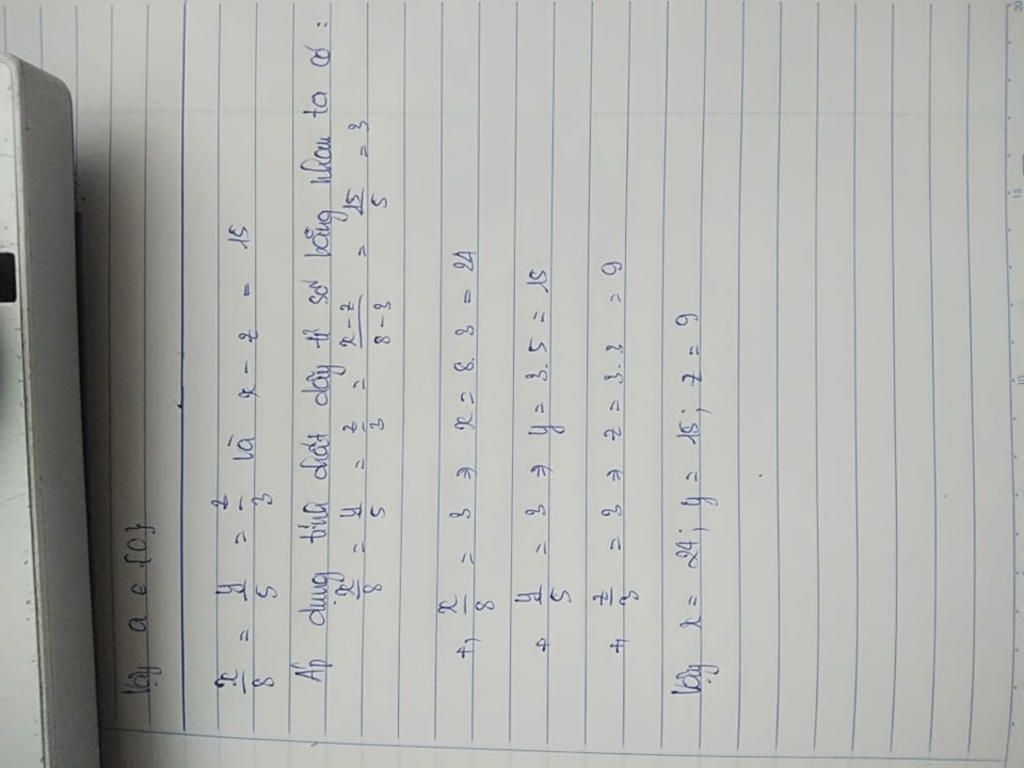 Vậy a ∈ {0}
x/8 = y/5 = z/3 và x - z = 15
Áp dụng tính chất dãy tỉ số bằng nhau ta có :
x/8 = y/5 = z/3 = x-z/8-3 = 15/5 = 3
+, x/8 = 3 => x = 8.3 = 24
+ y/5 = 3 => y = 3.5 = 15
+, z/3 = 3 => z = 3.3 = 9
Vậy x = 24; y = 15; z = 9
20
15
10